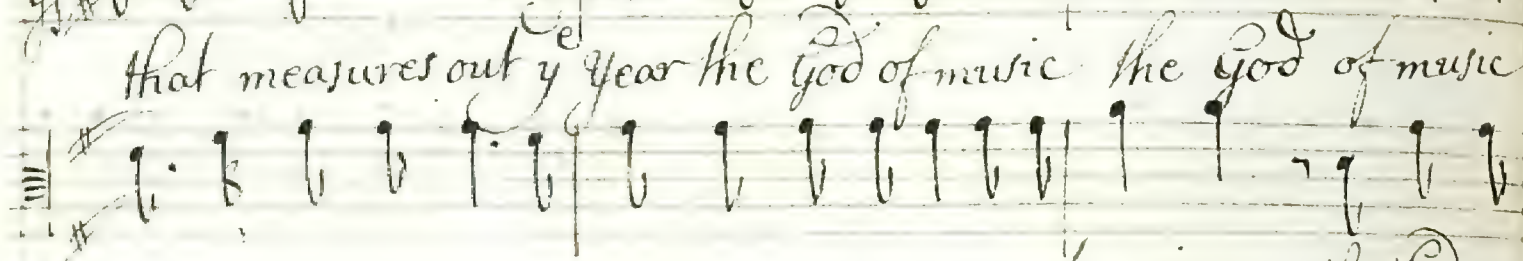 that measures out yᵉ year the God of music the God of music